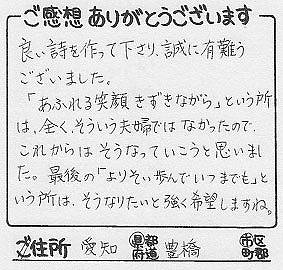 ご感想 ありがとうございます
良い詩を作って下さり、誠に有難う
ございました。
「あふれる笑顔 きずきながら」という所
は、全く、そういう夫婦では なかったので、
これからは そうなっていこうと思いまし
た。最後の「よりそい歩んで いつまでも」と
いう所は、そうなりたいと強く希望しますね。
ご住所 愛知 都道府県 豊橋 市区町郡